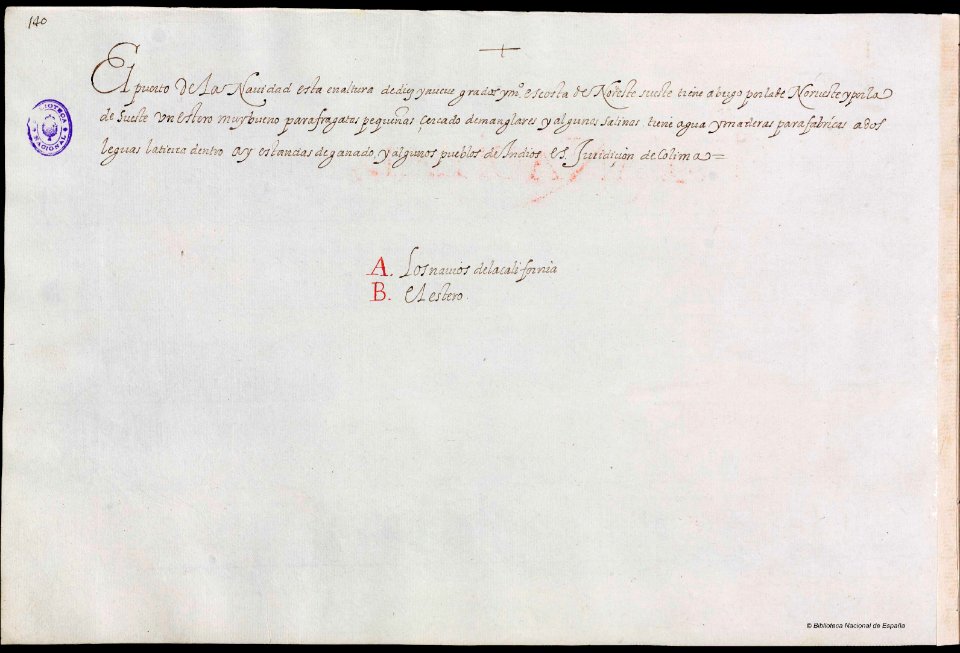 140
El puerto De Las Navidad esta en altura de diez y nueve grados y mº. es costa de Norueste sueste tiene abrigo por la de Norueste y por la
de sueste vn estero muy bueno para fragatas pequeñas çercado de manglares y algunas salinas. tiene agua y maderas para fabricas a dos
leguas la tierra dentro ay estancias de ganado, y algunos pueblos de Indios. es. Juridiçion de Colima=
BIBLIOTECA NACIONAL
A. Los nauios de la california
B. El estero.
© Biblioteca Nacional de España